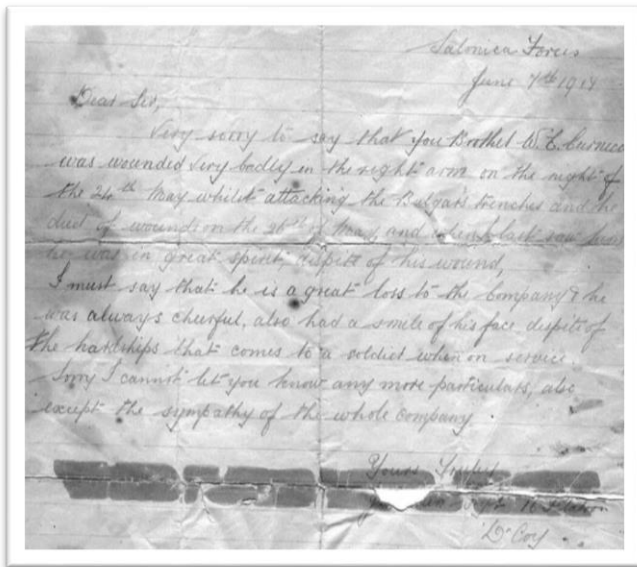 Salonica Forces
June 7th 191
Dear Sir,
Very sorry to say that you Brother W. E.
was wounded very badly in the right arm on the night of
the 24th May whilst attacking the Bulgars trenches and he
died of wounds on the 26th of May, and when last saw him
he was in great spirit, dispite of his wound,
I must say that he is a great loss to the Company & he
was always cheerful, also had a smile of his face dispite of
the hardships that comes to a soldier when on service.
Sorry I cannot let you know any more particulars, also
except the sympathy of the whole Company.
Yours
Sgt Platoon
"D" Coy